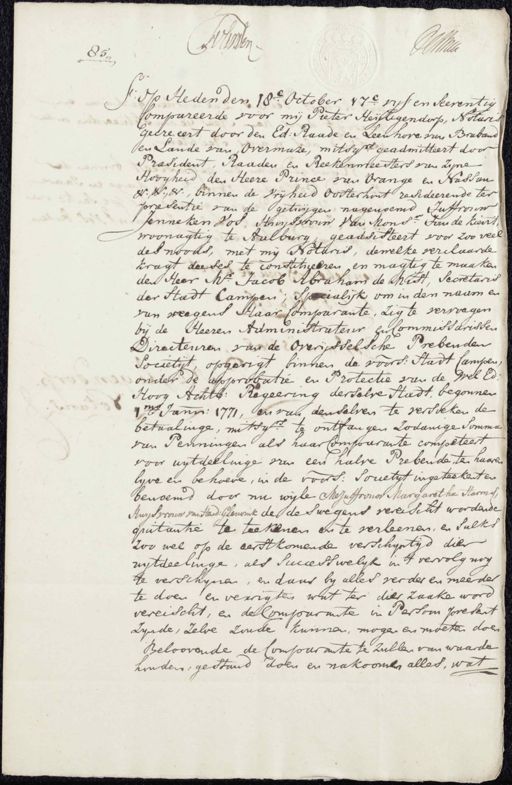 85
Op Heden den 18e October 17c vyf en seventig
Compareerde voor my Pieter Heyligendorp, Notaris
gecreëert door den Ed. Raade en Leenhove van Braband
en Lande van Overmaze, mitsgrs. geadmitteert door
President, Raaden en Reekenmeesters van zyne
Hoogheid den Heere Prince van Orange en Nassau
&c, &c, &c, binnen de Vryheid Oosterhout resideerende ter
presentie van de getuygen nagenoemd Juffrouw
Jenneken Vos, Huysvrouw van Mons.r Jan de
woonagtig te Aalburg, geadsisteert voor zoo veel
des noods, met my Notaris, dewelke verclaarde
kragt deeses te constitueeren en magtig te maaken
den Heer Mr. Jacob Abraham de Mist, Secretaris
der Stadt Campen, Specialyk om in den naam en
van weegens Haar Comparante, zig te vervoegen
by de Heeren Administrateur en Commissarissen
Directeuren van de Overysselsche Prebenden
Societyt, opgerigt binnen de voors: Stadt Campen,
onder de approbatie en Protectie van de Wel Ed:
Hoog Achtb: Regeering derselve Stadt, begonnen
1ms. Janry. 1771, en van denselven te versoeken de
betaalinge, mitsgrs. te ontfangen zodanige Somma
van Penningen als haar Comparante competeert
voor uytdeelinge van een halve Prebende ten haare
lyve en behoeve, in de voors: Societyt ingeteekent en
benoemd door nu wyle Mejuffrouw Margaretha Harmsz,
Huysvrouw van de deswegens vereischt wordende
quitantie te teekenen en te verleenen, en sulks
zoo wel op de eerstkomende verschyntyd dier
uytdeelinge, als Successivelyk in 't vervolg nog
te verschynen, en daar by alles verder en meerder
te doen en verrigten wat ter dier zaake word
vereischt, en de Comparante in Persoon present
zynde, zelve zoude kunnen, mogen en moeten doen
Beloovende de Comparante te zullen van waarde
houden, gestand doen en nakoomen alles, wat